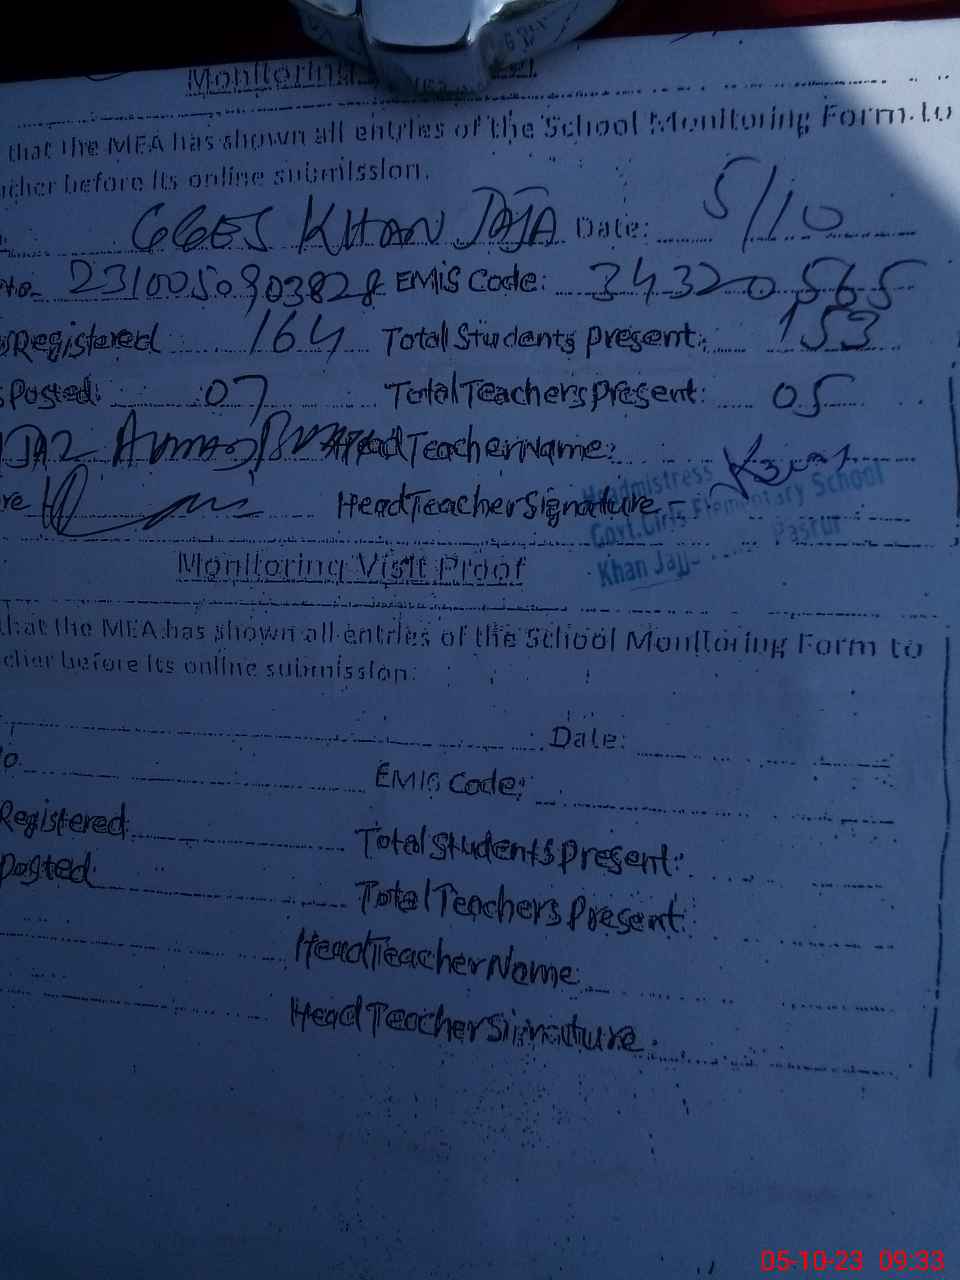 Monitoring
that the MEA has shown all entries of the School Monitoring Form to
cher before its online submission.
GGES KHAN JAJA Date: 5/10
No. 2310050903828 EMIS Code: 34320565
Registered 164 Total Students Present: 153
Posted: 07 Total Teachers Present: 05
Head Teacher Name:
re Head Teacher Signature
Headmistress
Govt. Girls Elementary School
Khan Jajj- Pasrur
Monitoring Visit Proof
that the MEA has shown all entries of the School Monitoring Form to
cher before its online submission.
Date:
o. EMIS Code:
Registered: Total Students Present:
Posted: Total Teachers Present:
Head Teacher Name:
Head Teacher Signature:
05-10-23 09:33